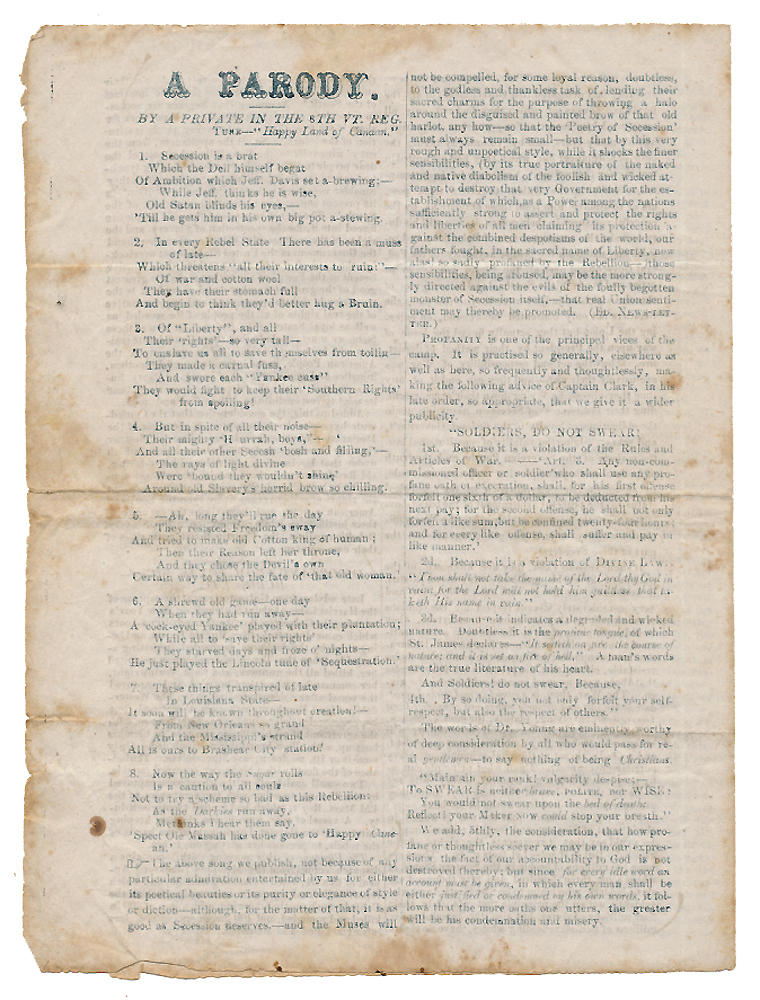 A PARODY.
BY A PRIVATE IN THE 8TH VT. REG.
TUNE—"Happy Land of Canaan."
1. Secession is a brat
Which the Deil himself begat
Of Ambition which Jeff. Davis set a-brewing;—
While Jeff. thinks he is wise,
Old Satan blinds his eyes,—
'Till he gets him in his own big pot a-stewing.
2. In every Rebel State There has been a muss
of late—
Which threatens "all their interests to ruin!"—
Of war and cotton wool
They have their stomach full
And begin to think they'd better hug a Bruin.
3. Of "Liberty", and all
Their 'rights'—so very tall—
To enslave us all to save themselves from toilin—
They made a carnal fuss,
And swore each "Yankee cuss"
They would fight to keep their 'Southern Rights'
from spoiling!
4. But in spite of all their noise—
Their mighty 'Hurrah, boys,"—
And all their other Secesh 'bosh and filling,'—
The rays of light divine
Were 'bound they wouldn't shine'
Around old Slavery's horrid brow so chilling.
5. —Ah, long they'll rue the day
They resisted Freedom's sway
And tried to make old Cotton king of human;
Then their Reason left her throne,
And they chose the Devil's own
Certain way to share the fate of 'that old woman.'
6. A shrewd old game—one day
When they had run away—
A 'cock-eyed Yankee' played with their plantation;
While all to 'save their rights'
They starved days and froze o' nights—
He just played the Lincoln tune of 'Sequestration.'
7. These things transpired of late
In Louisiana State—
It soon will be known throughout creation!—
From New Orleans so grand
And the Mississippi's strand
All is ours to Brashear City station!
8. Now the way the Sugar rolls
Is a caution to all souls
Not to try a scheme so bad as this Rebellion:
As the Darkies run away,
Methinks I hear them say,
'Spect Ole Massah has done gone to 'Happy Cane-
an.'
☞ The above song we publish, not because of any
particular admiration entertained by us for either
its poetical beauties or its purity or elegance of style
or diction—although, for the matter of that, it is as
good as Secession deserves,—and the Muses will
not be compelled, for some loyal reason, doubtless,
to the godless and thankless task of lending their
sacred charms for the purpose of throwing a halo
around the disguised and painted brow of that old
harlot, any how—so that the 'Poetry of Secession'
must always remain small—but that by this very
rough and unpoetical style, while it shocks the finer
sensibilities, (by its true portraiture of the naked
and native diabolism of the foolish and wicked at-
tempt to destroy that very Government for the es-
tablishment of which, as a Power among the nations
sufficiently strong to assert and protect the rights
and liberties of all men claiming its protection a-
gainst the combined despotisms of the world, our
fathers fought, in the sacred name of Liberty, now
alas! so sadly profaned by the Rebellion—) those
sensibilities, being aroused, may be the more strong-
ly directed against the evils of the foully begotten
monster of Secession itself,—that real Union senti-
ment may thereby be promoted. (ED. NEWS-LET-
TER.)
PROFANITY is one of the principal vices of the
camp. It is practised so generally, elsewhere as
well as here, so frequently and thoughtlessly, ma-
king the following advice of Captain Clark, in his
late order, so appropriate, that we give it a wider
publicity.
"SOLDIERS, DO NOT SWEAR!
1st. Because it is a violation of the Rules and
Articles of War. 'Art. 3. Any non-com-
missioned officer or soldier who shall use any pro-
fane oath or execration, shall, for his first offense
forfeit one sixth of a dollar, to be deducted from his
next pay; for the second offense, he shall not only
forfeit a like sum, but be confined twenty-four hours;
and for every like offense, shall suffer and pay in
like manner.'
2d. Because it is a violation of DIVINE LAW.
"Thou shalt not take the name of the Lord thy God in
vain; for the Lord will not hold him guiltless that ta-
keth His name in vain."
3d. Because it indicates a degraded and wicked
nature. Doubtless it is the profane tongue, of which
St. James declares—"It setteth on fire the course of
nature; and it is set on fire of hell." A man's words
are the true literature of his heart.
And Soldiers! do not swear, Because,
4th. By so doing, you not only forfeit your self-
respect, but also the respect of others."
The words of Dr. Young are eminently worthy
of deep consideration by all who would pass for re-
al gentlemen—to say nothing of being Christians.
"Maintain your rank! vulgarity despise;—
To SWEAR is neither brave, POLITE, nor WISE:
You would not swear upon the bed of death:
Reflect! your Maker now could stop your breath."
We add, 5thly, the consideration, that how pro-
fane or thoughtless soever we may be in our expres-
sions the fact of our accountability to God is not
destroyed thereby; but since for every idle word an
account must be given, in which every man shall be
either justified or condemned on his own words, it fol-
lows that the more oaths one utters, the greater
will be his condemnation and misery.